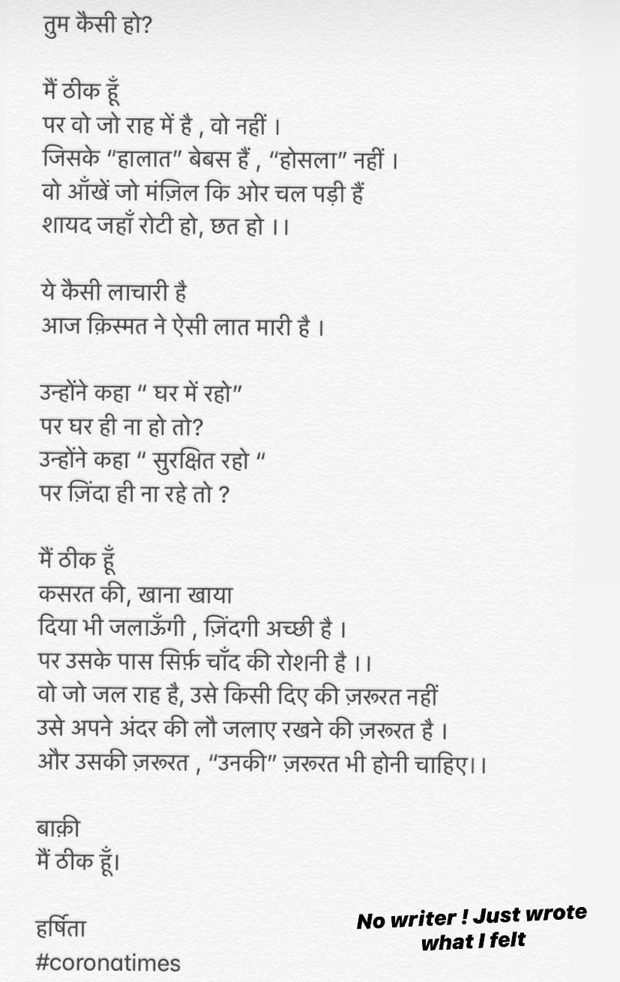 तुम कैसी हो?
मैं ठीक हूँ
पर वो जो राह में है , वो नहीं ।
जिसके “हालात” बेबस हैं , “होसला” नहीं ।
वो आँखें जो मंज़िल कि ओर चल पड़ी हैं
शायद जहाँ रोटी हो, छत हो ।।
ये कैसी लाचारी है
आज क़िस्मत ने ऐसी लात मारी है ।
उन्होंने कहा “ घर में रहो”
पर घर ही ना हो तो?
उन्होंने कहा “ सुरक्षित रहो “
पर ज़िंदा ही ना रहे तो ?
मैं ठीक हूँ
कसरत की, खाना खाया
दिया भी जलाऊँगी , ज़िंदगी अच्छी है ।
पर उसके पास सिर्फ़ चाँद की रोशनी है ।।
वो जो जल राह है, उसे किसी दिए की ज़रूरत नहीं
उसे अपने अंदर की लौ जलाए रखने की ज़रूरत है ।
और उसकी ज़रूरत , “उनकी” ज़रूरत भी होनी चाहिए।।
बाक़ी
मैं ठीक हूँ।
हर्षिता
#coronatimes
No writer ! Just wrote
what I felt